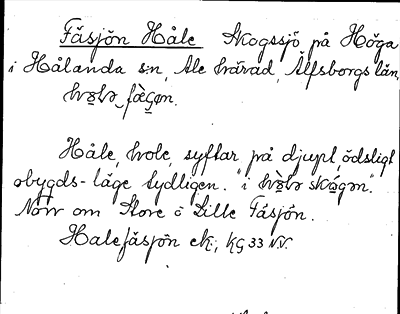 Fåsjön Håle Skogssjö på Höga
i Hålanda sn, Ale härad, Älfsborgs län,
Håle, hole, syftar på djupt, ödsligt
obygds-läge tydligen. "i
Norr om Store o Lille Fåsjön.
Halefåsjön ek, kg 33 N.V.